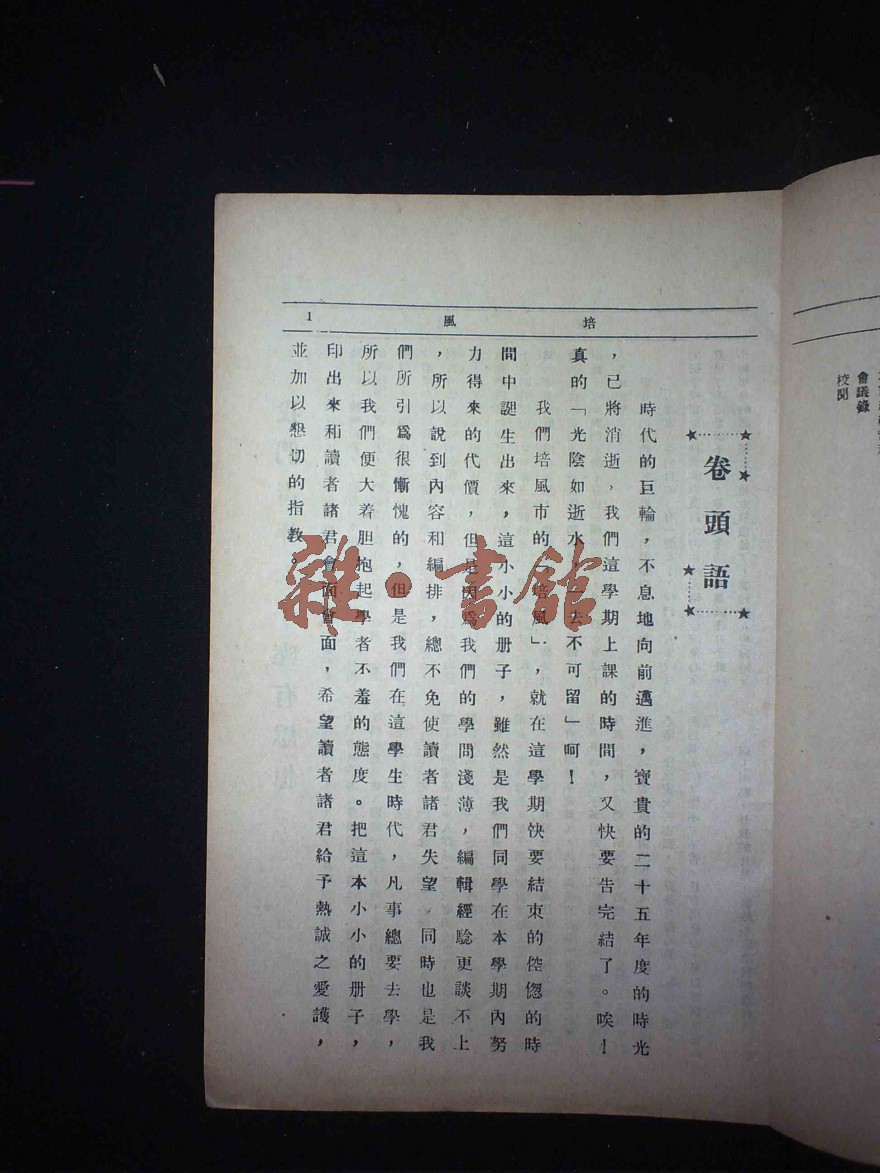 培風 1
卷頭語
時代的巨輪，不息地向前邁進，寶貴的二十五年度的時光
，已將消逝，我們這學期上課的時間，又快要告完結了。唉！
真的「光陰如逝水一去不可留」呵！
我們培風市的「培風」，就在這學期快要結束的倥偬的時
間中誕生出來，這小小的册子，雖然是我們同學在本學期內努
力得來的代價，但是因為我們的學問淺薄，編輯經驗更談不上
，所以說到內容和編排，總不免使讀者諸君失望，同時也是我
們所引爲很慚愧的，但是我們在這學生時代，凡事總要去學，
所以我們便大着胆抱起學者不羞的態度。把這本小小的册子，
印出來和讀者諸君會面會面，希望讀者諸君給予熱誠之愛護，
並加以懇切的指教。
會議錄
校聞
雜·書館